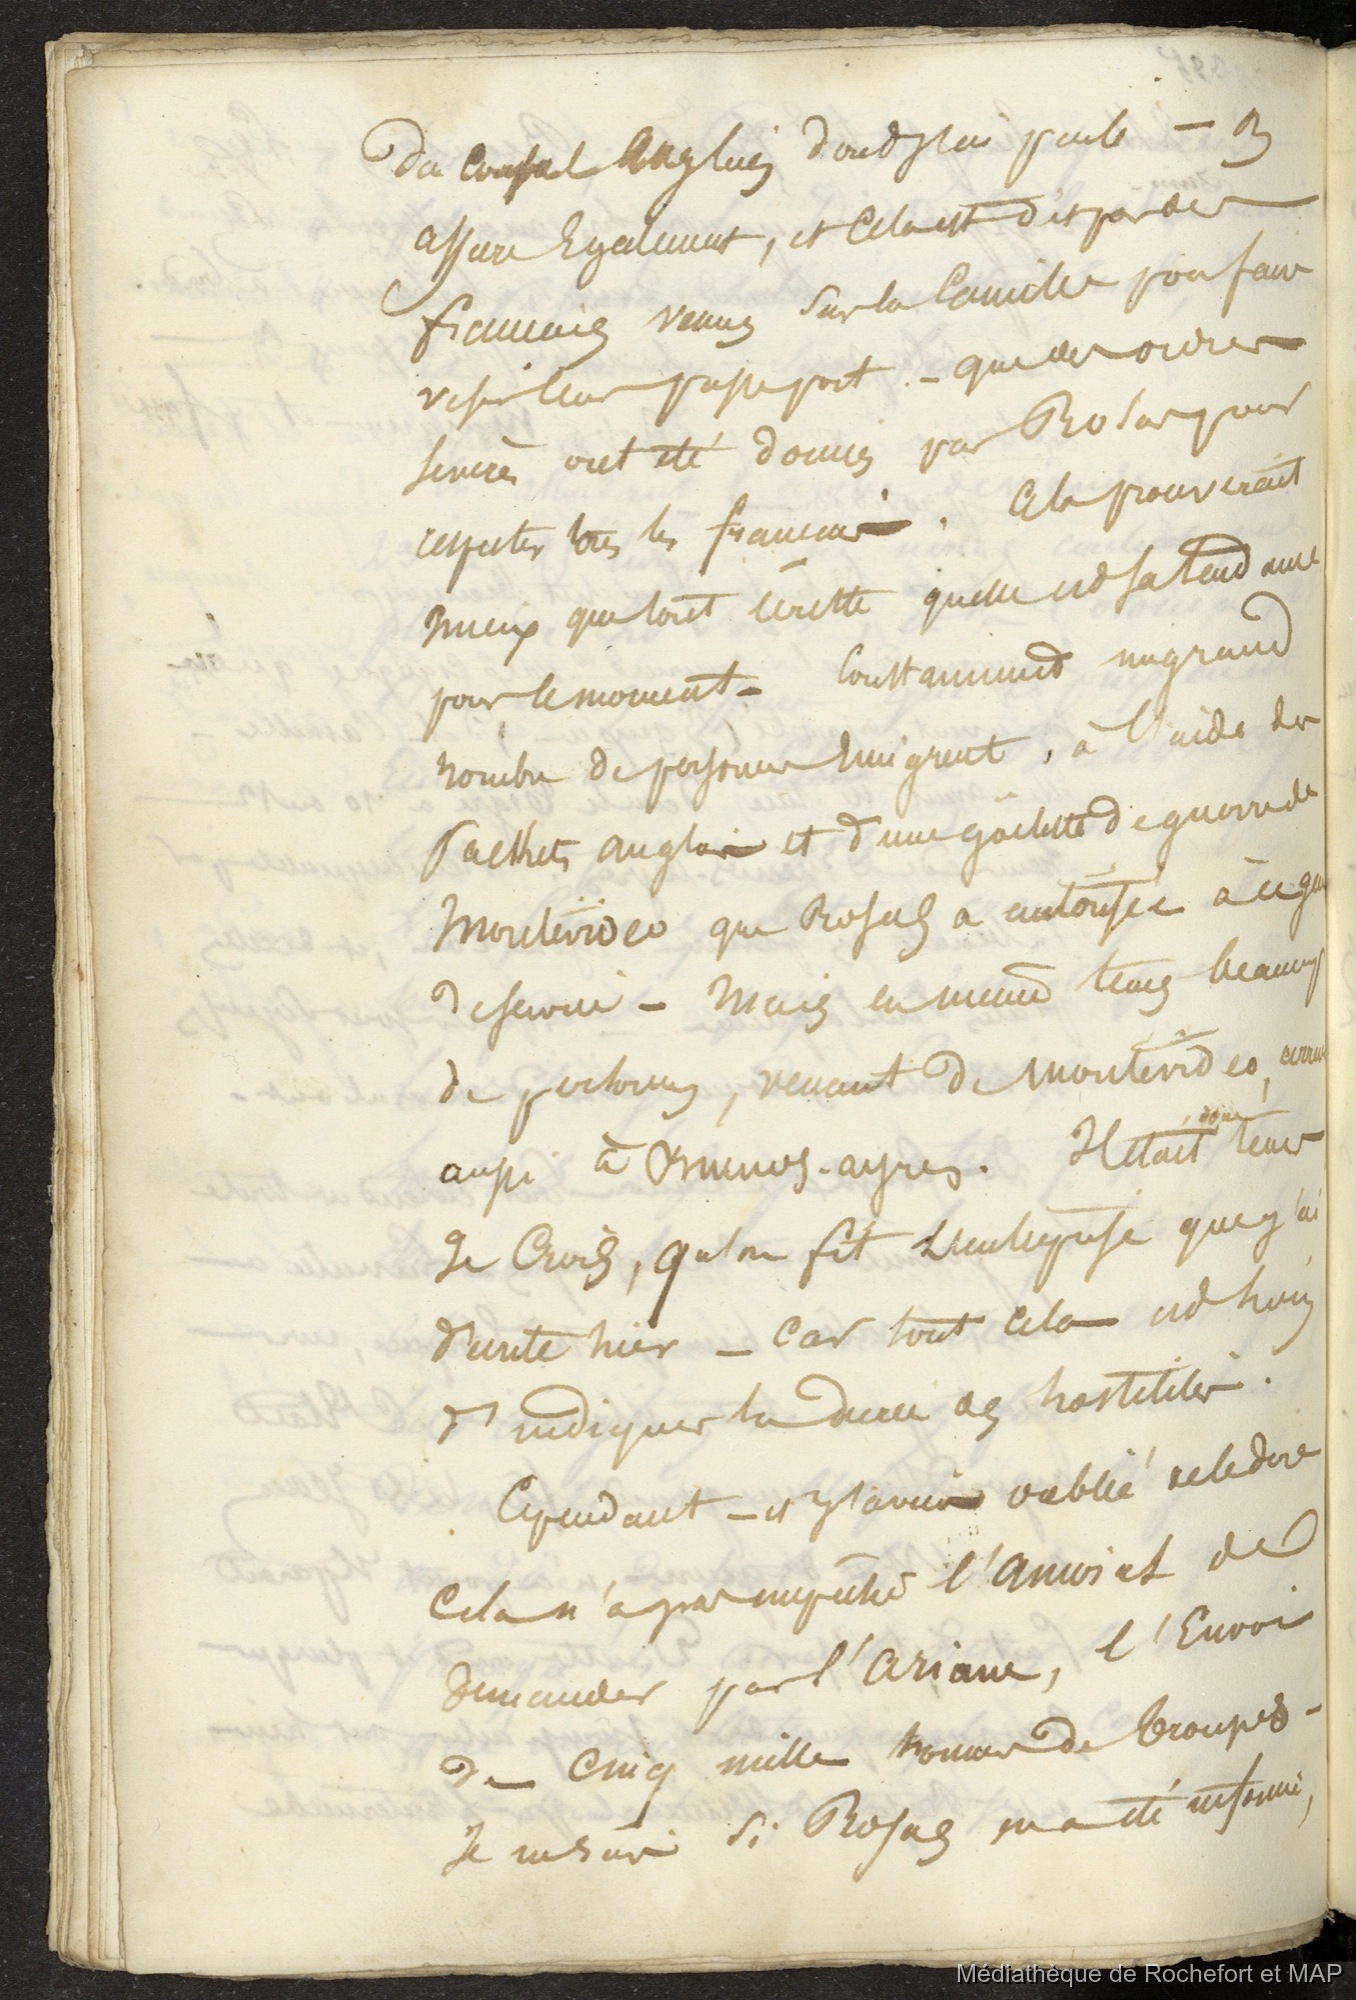 du Consul Anglais dont j'ai parlé – on
assure Egalement, et cela est dit par des
français venus sur la Camille pour faire
viser leur passeport – que des ordres
sevères ont été donnés par Rosas pour
respecter tous les français. Cela prouverait
mieux que tout le reste quelle est sa tendance
pour le moment – Constamment un grand
nombre de personnes Emigrent, à l'aide des
Packets anglais et d'une goëlette de guerre de
Montévidéo que Rosas a autorisée à ce
deservir – Mais en même tems beaucoup
de personnes, venant de Montévidéo, arrivent
aussi à Buenos-ayres. Il était donc tems
Je Crois, qu'on fit l'entreprise que j'ai
décrite hier – Car tout cela est loin
d'indiquer la durée des hostilités.
Cependant – et j'avais oublié de le dire
cela n'a pas empêché l'Amiral de
demander par l'Ariane, l'Envoi
de Cinq mille hommes de troupes –
Je ne sais si Rosas en a été informé,
Médiathèque de Rochefort et MAP